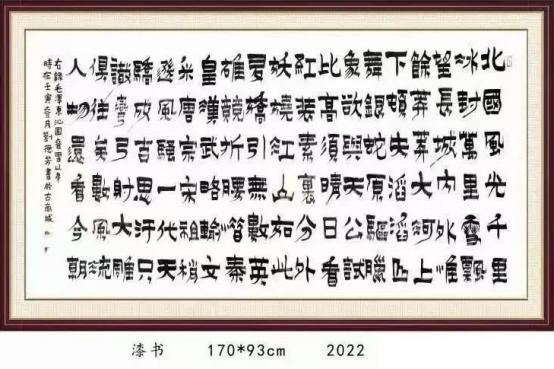 北國風光千里
冰封萬里雪飄
望長城內外惟
餘莽莽大河上
下頓失滔滔山
舞銀蛇原馳臘
象欲與天公試
比高須晴日看
紅裝素裹分外
妖嬈江山如此
多嬌引無數英
雄競折腰惜秦
皇漢武略輸文
采唐宗宋祖稍
遜風騷一代天
驕成吉思汗只
識彎弓射大雕
俱往矣數風流
人物還看今朝
右錄毛澤東沁園春雪
時在壬寅月劉書於古城
漆书 170*93cm 2022